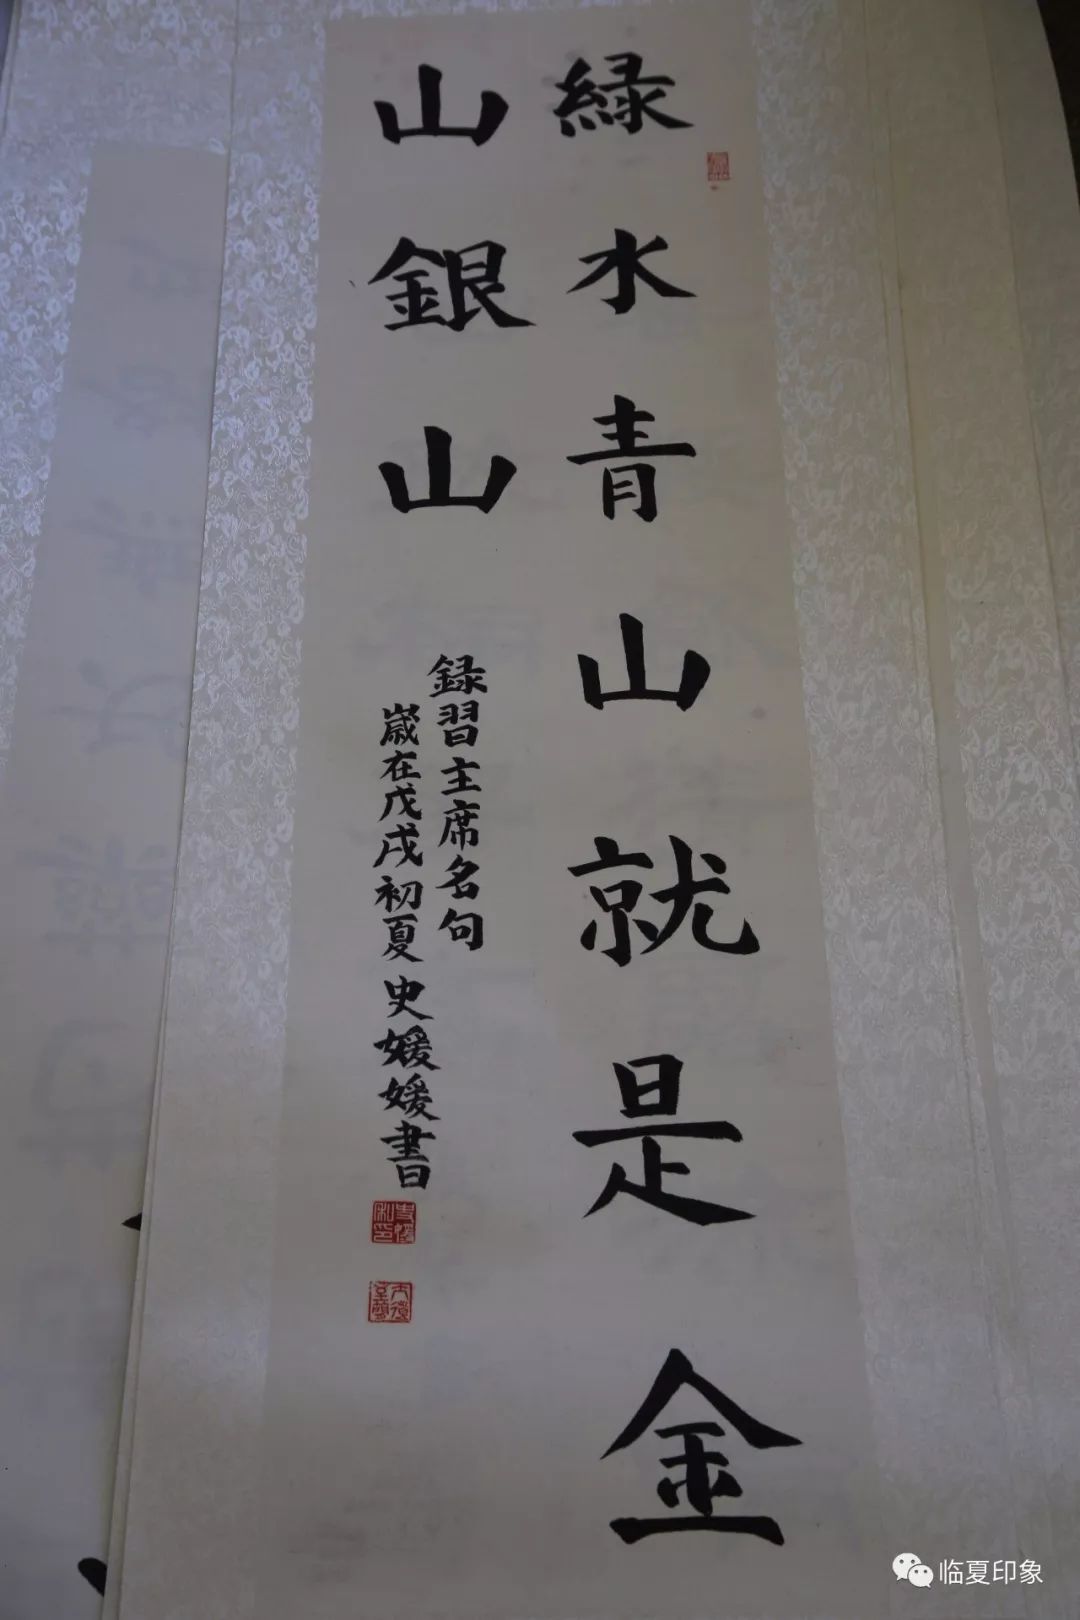 緑水青山就是金
山銀山
録習主席名句
嵗在戊戌初夏史媛媛書
临夏印象